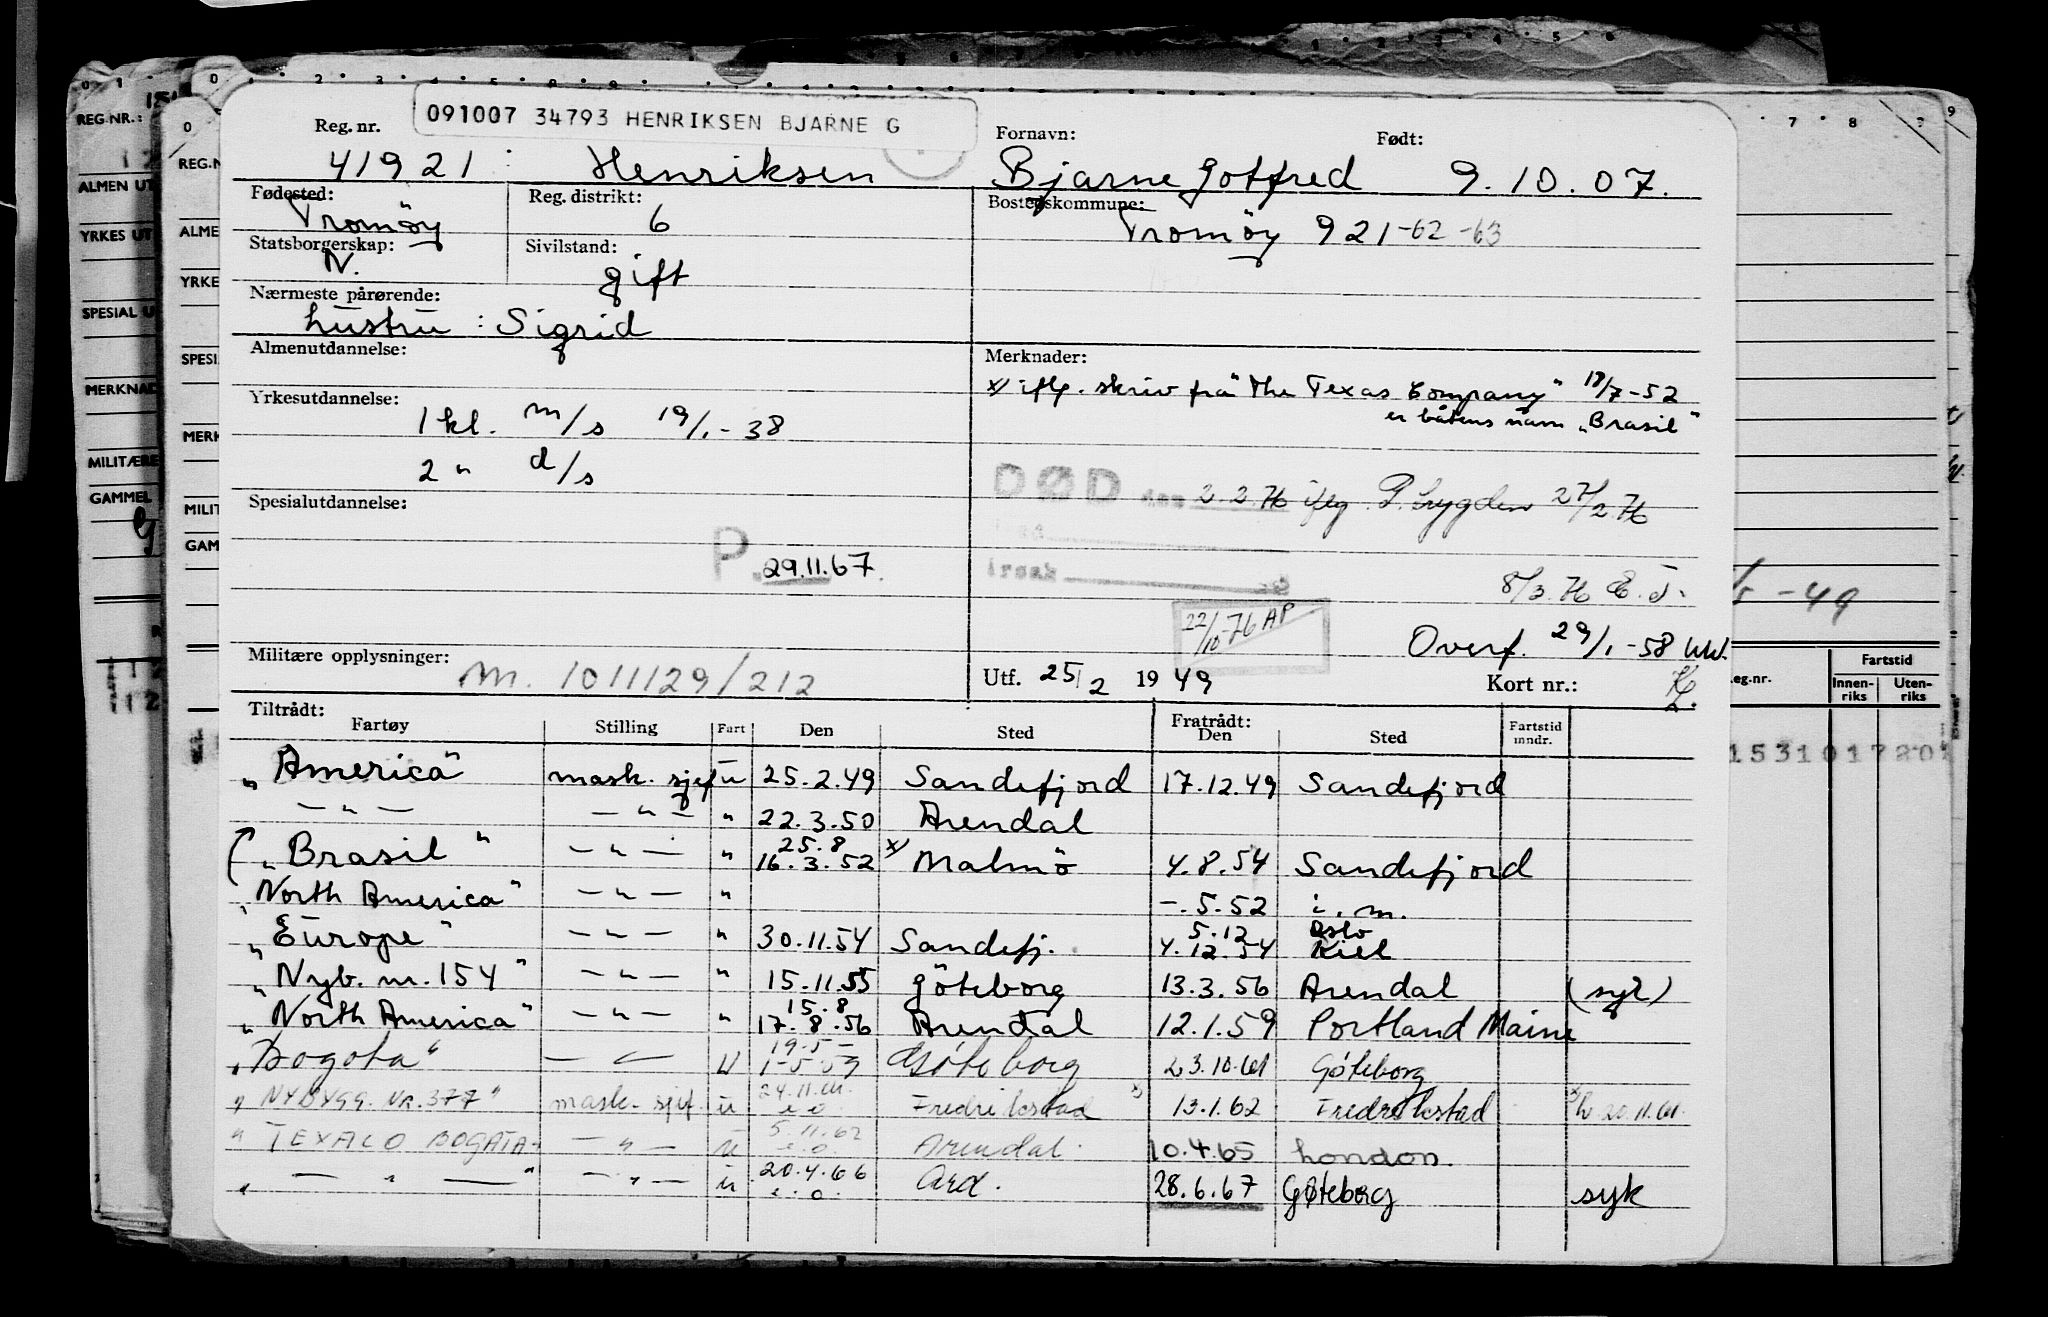 091007 34793 HENRIKSEN BJARNE G
Reg. nr. Fornavn: Født:
41921 Henriksen Bjarne Gotfred 9.10.07.
Fødested: Reg. distrikt: Bostedskommune:
Tromöy 6 Tromöy 921-62-63
Statsborgerskap: Sivilstand:
N. gift
Nærmeste pårørende:
hustru : Sigrid
Almenutdannelse: Merknader:
x) iflg. skriv frå "The Texas Company" 18/7-52
er båtens navn "Brasil"
Yrkesutdannelse:
1 kl. m/s 19/1-38
2 " d/s
DØD den 2.2.76 iflg. P. trygden 27/2.76
Spesialutdannelse:
P. 29.11.67.
årsak
8/3.76 E.T.
22/10-76 AP
Overf. 29/1-58 WW.
Militære opplysninger: Utf. 25/2 1949 Kort nr.: 2.
m. 1011129/212
Tiltrådt: Fratrådt:
Fartøy Stilling Fart Den Sted Den Sted Fartstid inndr.
"America" mask. sjef u 25.2.49 Sandefjord 17.12.49 Sandefjord
— " — — " — " 22.3.50 Arendal
"Brasil" — " — " 25.8 16.3.52 x) Malmö 4.8.54 Sandefjord
"North America" — " — " -.5.52 i. m.
"Europe" — " — " 30.11.54 Sandefj. 5.12 4.12.54 Oslo Kiel
"Nyb. nr. 154" — " — " 15.11.55 Göteborg 13.3.56 Arendal (syk)
"North America" — " — " 15.8 17.8.56 Arendal 12.1.59 Portland Maine
"Bogota" — " — U 19.5- 1-5-59 Göteborg 23.10.61 Göteborg
"NYBYGG. NR. 377" mask. sjef. u 24.11.61. e.o. Fredrikstad x) 13.1.62 Fredrikstad x) 20.11.61.
"TEXACO BOGATA" — " — u 5.11.62 e.o. Arendal. 10.4.65 London.
" — " — " — " — u 20.4.66 e.o. Ard. 28.6.67 Gøteborg syk
REG.NR.:
ALMEN UT
YRKES UT
SPESIAL U
MERKNAD
MILITÆRE
GAMMEL
REG.N
ALME
YRKE
SPESI
MERK
MILIT
GAM
-49
eg.nr. Fartstid
Innenriks Utenriks